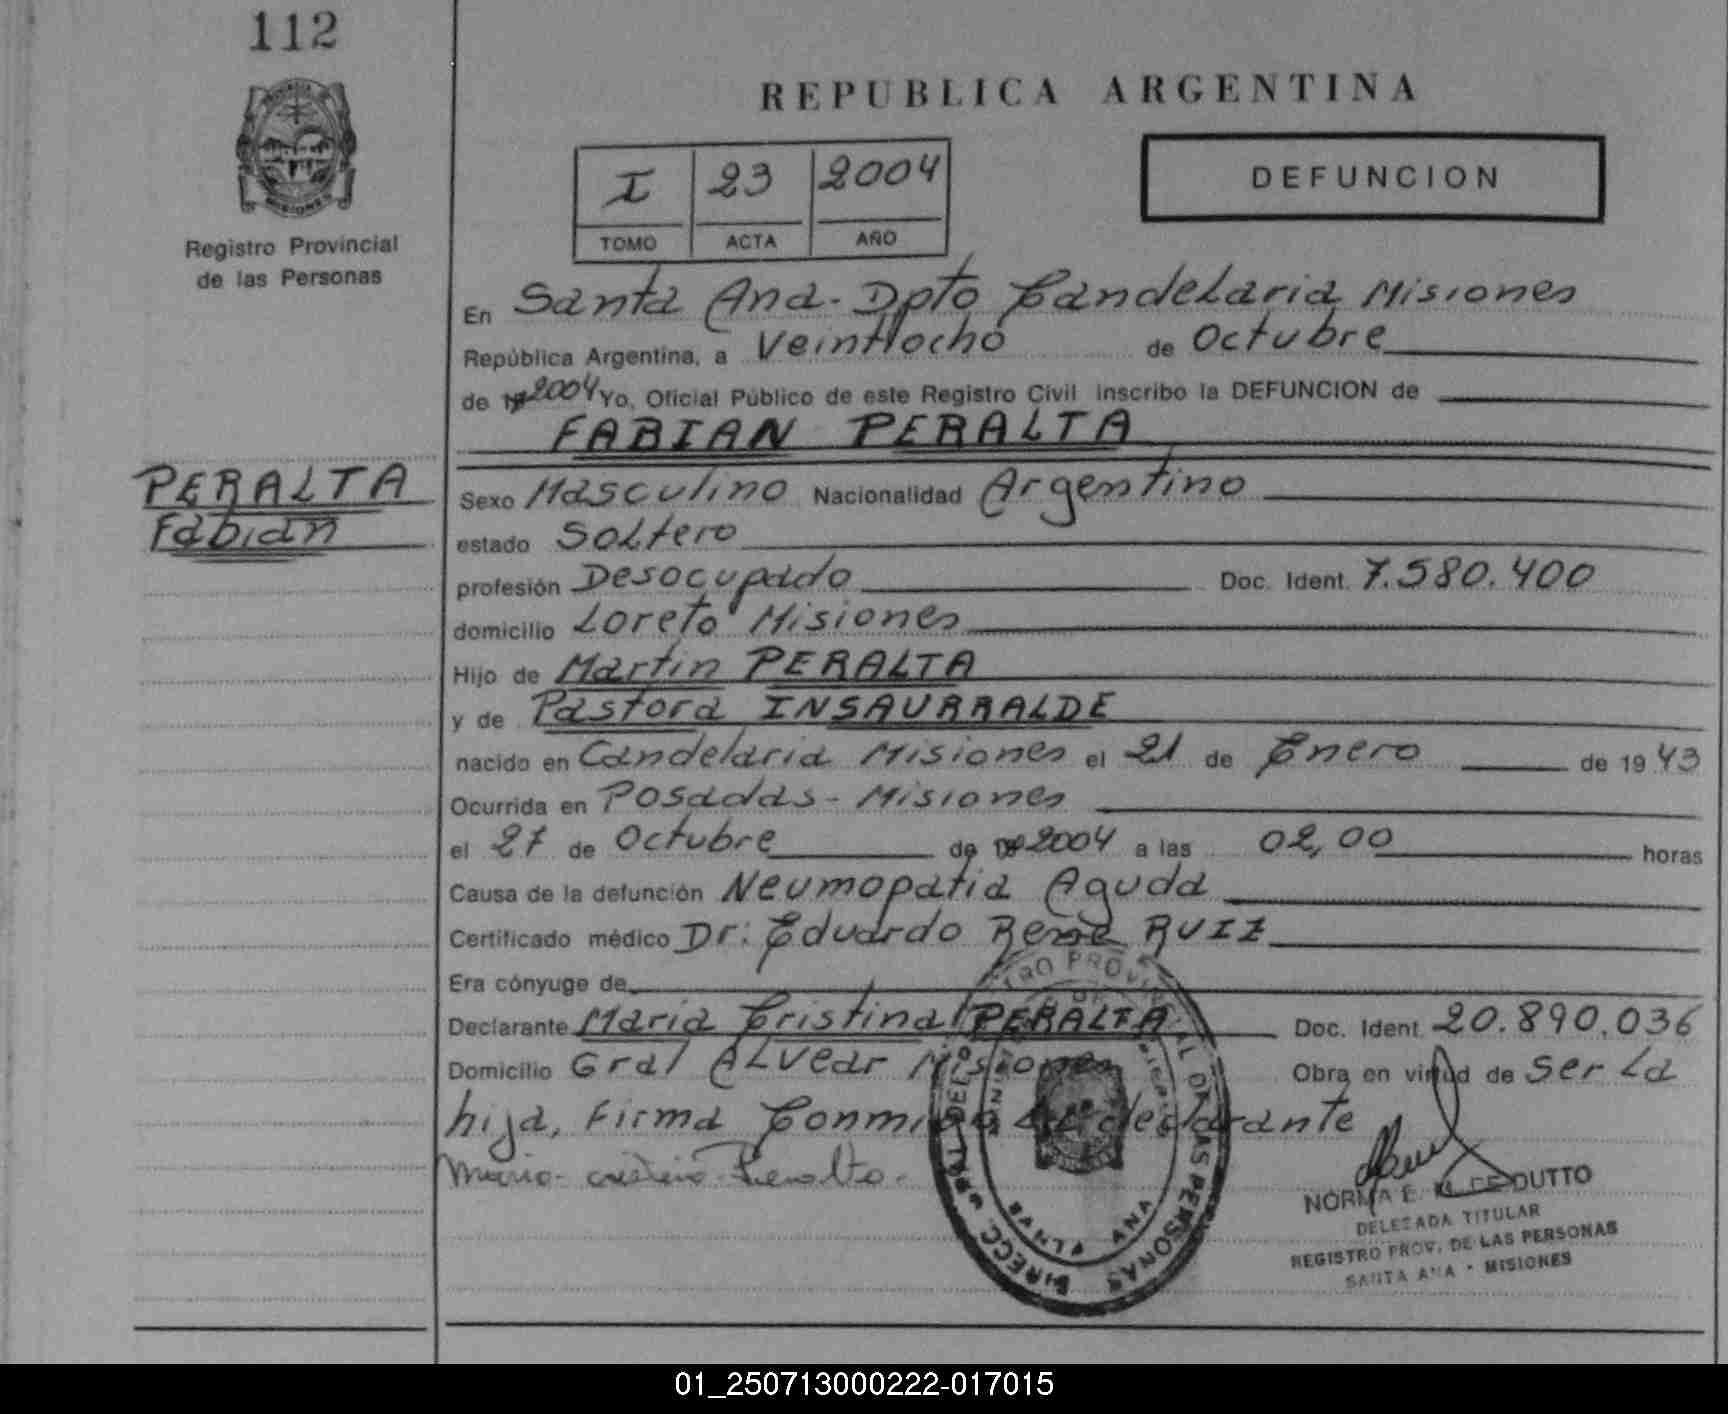 112
REPUBLICA ARGENTINA
MISIONES
Registro Provincial
de las Personas
I 23 2004
TOMO ACTA AÑO
DEFUNCION
En Santa Ana - Dpto Candelaria Misiones
República Argentina, a Veintiocho de Octubre
de 19 2004 Yo, Oficial Público de este Registro Civil inscribo la DEFUNCION de
FABIAN PERALTA
PERALTA
Fabian
Sexo Masculino Nacionalidad Argentino
estado Soltero
profesión Desocupado Doc. Ident. 7.580.400
domicilio Loreto Misiones
Hijo de Martin PERALTA
y de Pastora INSAURRALDE
nacido en Candelaria Misiones el 21 de Enero de 1943
Ocurrida en Posadas - Misiones
el 27 de Octubre de 2004 a las 02,00 horas
Causa de la defunción Neumopatia Aguda
Certificado médico Dr: Eduardo Rene RUIZ
Era cónyuge de
Declarante Maria Cristina PERALTA Doc. Ident. 20.890.036
Domicilio Gral Alvear Misiones Obra en virtud de Ser La
hija, Firma Conmigo La declarante
Maria Cristina Peralta.
NORMA E. DE DUTTO
DELEGADA TITULAR
REGISTRO PROV. DE LAS PERSONAS
SANTA ANA - MISIONES
DE LAS PERSONAS
SANTA ANA
01_250713000222-017015